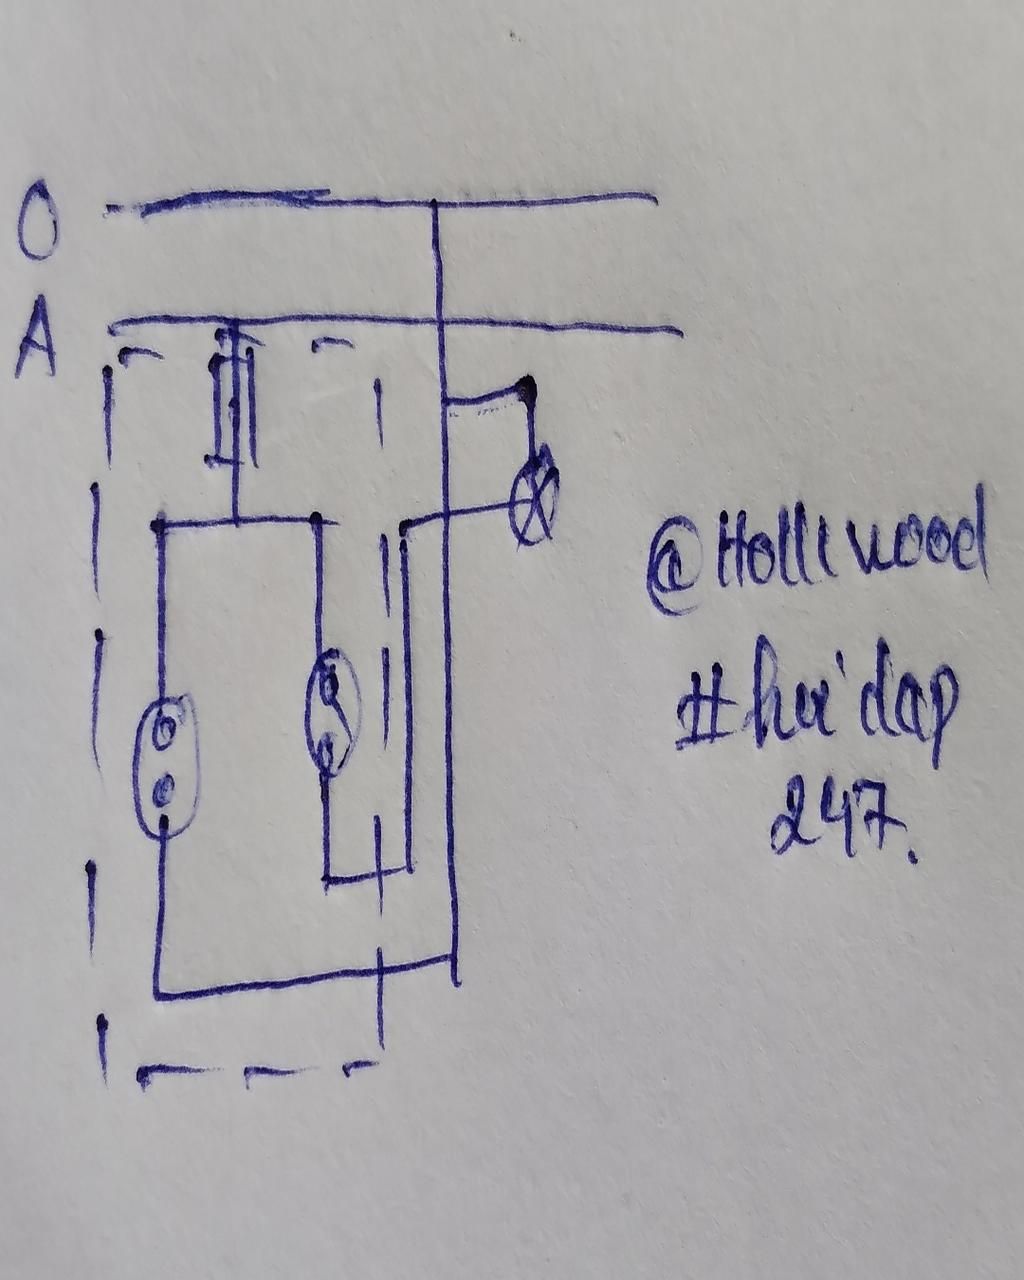 O
A
@Holliwood
#hoi'dap
247.